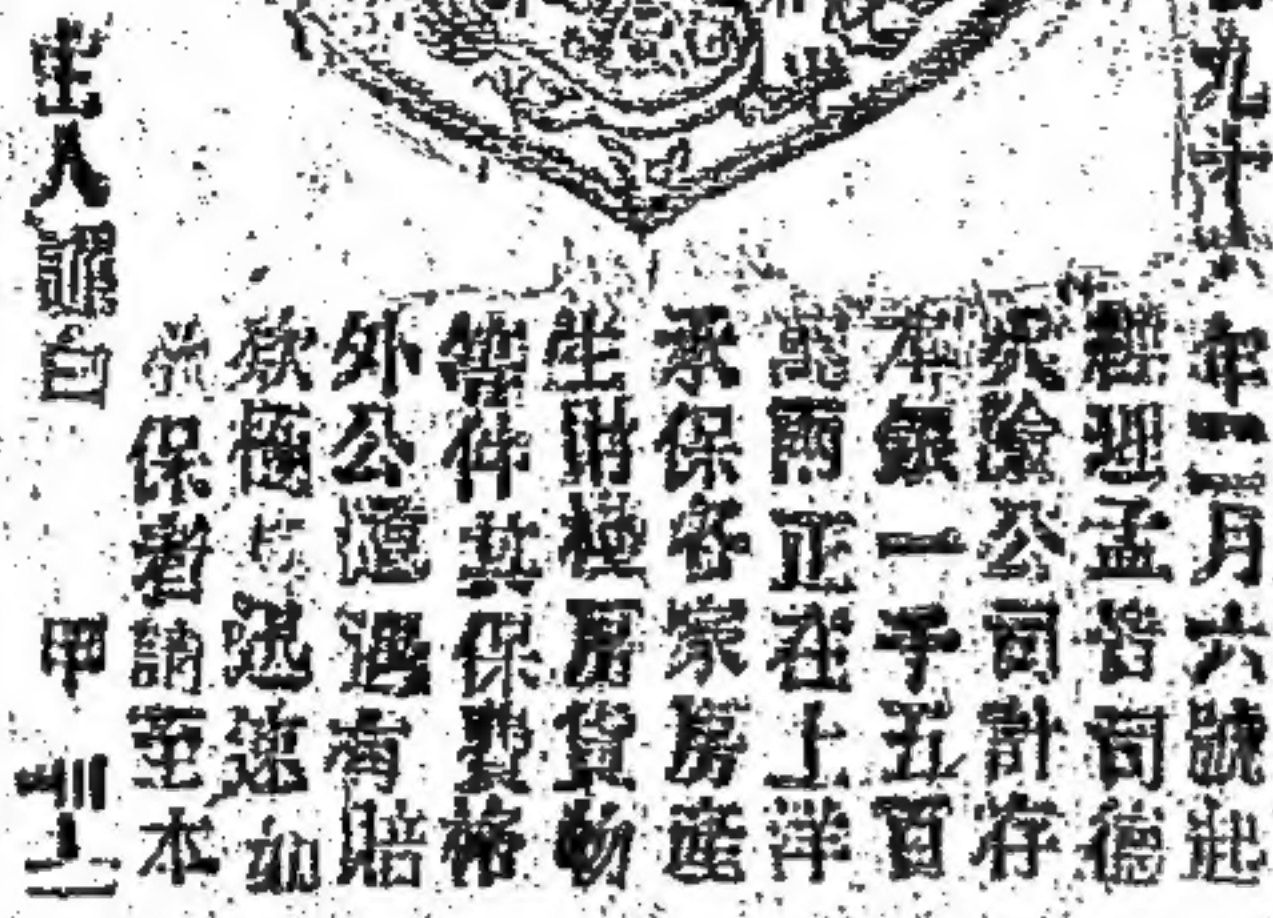 九十六年一月六號起
經理孟皆司德
火險公司計存
本銀一千五百
萬兩正在上洋
承保各家房產
生財棧房貨物
等件其保費格
外公道遇有賠
款極 迅速如
欲保者請至本
主人謹白 甲 二